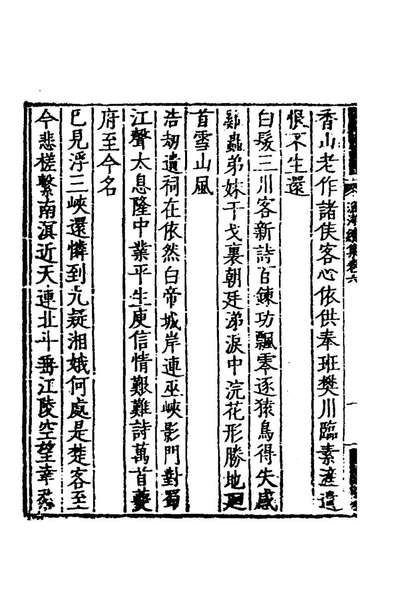 香山老作諸侯客心依供奉班樊川臨素滻遺
恨不生還
白髮三川客新詩百鍊功飄零逐猿鳥得失感
雞蟲弟妹干戈裏朝廷涕淚中浣花形勝地廻
首雪山風
浩刼遺祠在依然白帝城岸連巫峽影門對蜀
江聲太息隆中業平生庾信情艱難詩萬首夔
府至今名
已見浮三峽還憐到九疑湘娥何處是楚客至
今悲槎繫南溟近天連北斗垂江陵空望幸
續集卷六
一